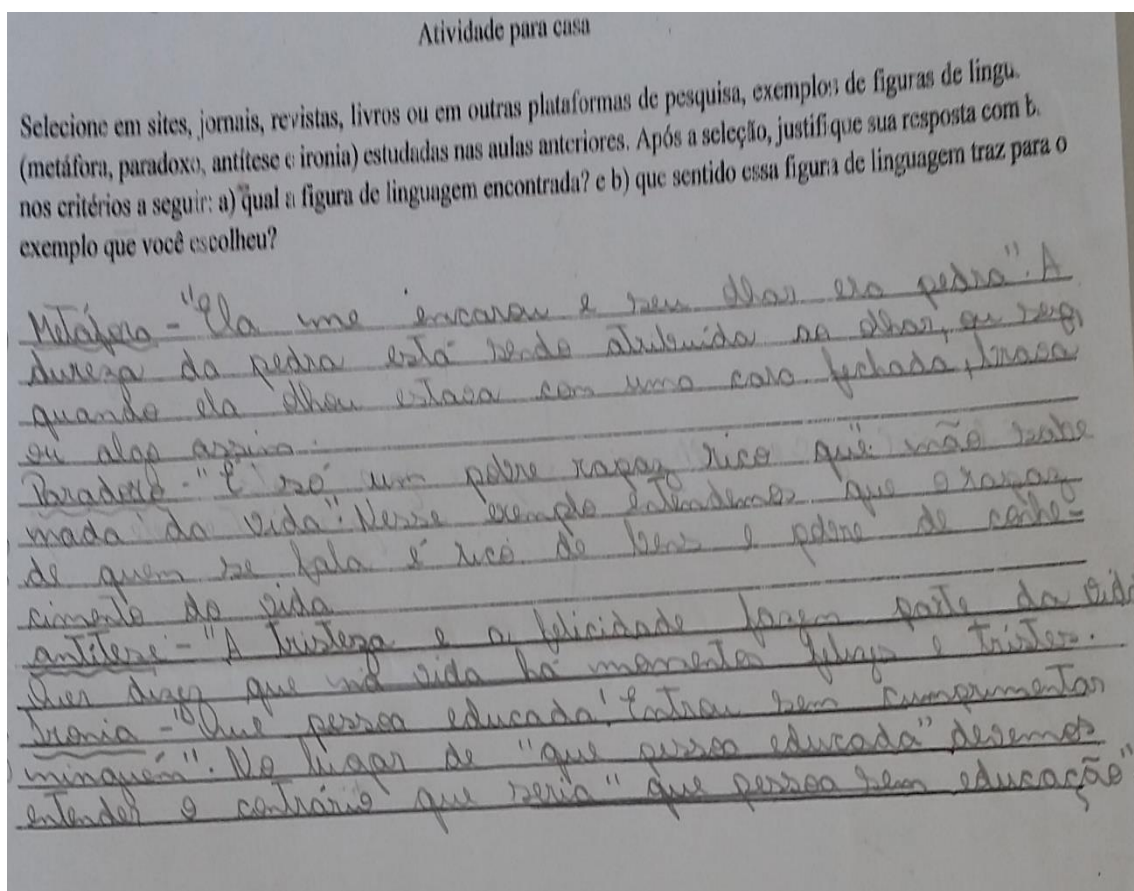 Atividade para casa
Selecione em sites, jornais, revistas, livros ou em outras plataformas de pesquisa, exemplos de figuras de lingu.
(metáfora, paradoxo, antítese e ironia) estudadas nas aulas anteriores. Após a seleção, justifique sua resposta com b.
nos critérios a seguir: a) qual a figura de linguagem encontrada? e b) que sentido essa figura de linguagem traz para o
exemplo que você escolheu?
Metáfora - "Ela me encarou e seu olhar era pedra". A
dureza da pedra está sendo atribuída ao olhar, ou seja,
quando ela olhou estava com uma cara fechada, braba
ou algo assim.
Paradoxo - "É só um pobre rapaz rico que não sabe
nada da vida". Nesse exemplo entendemos que o rapaz
de quem se fala é rico de bens e pobre de conhe-
cimento da vida
antítese - "A tristeza e a felicidade fazem parte da vida
Quer dizer que na vida há momentos felizes e tristes.
Ironia - "Que pessoa educada! Entrou sem cumprimentar
ninguém". No lugar de "que pessoa educada" devemos
entender o contrário que seria "que pessoa sem educação"